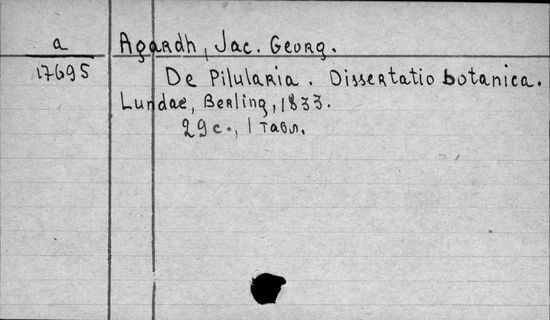 a
17695
Agardh, Jac. Georg.
De Pilularia. Dissertatio botanica.
Lundae, Berling, 1833.
29 c., 1 табл.